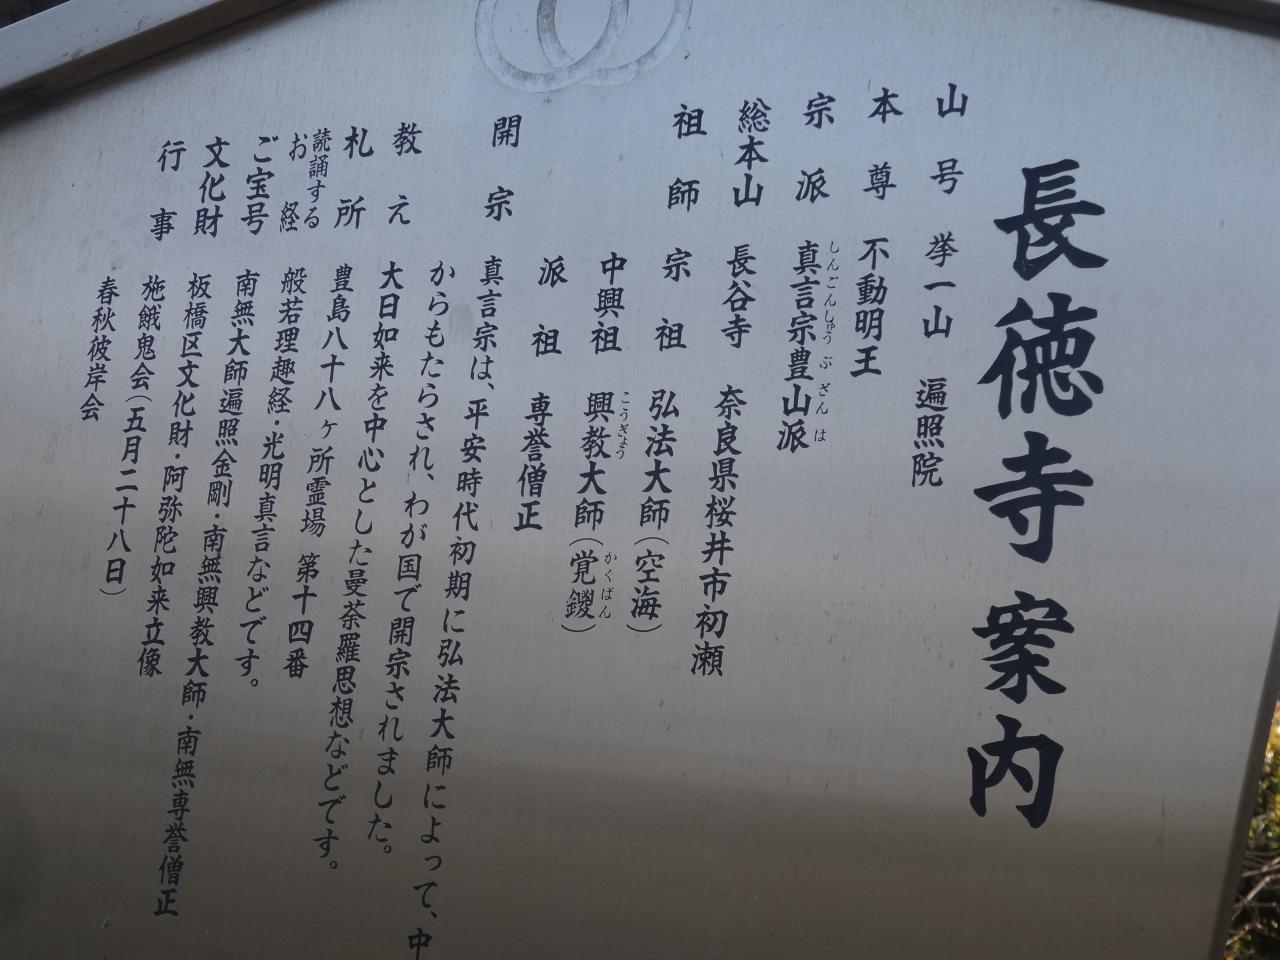 長徳寺案内
山号 挙一山 遍照院
本尊 不動明王
宗派 真言宗豊山派
しんごんしゅう ぶざんは
総本山 長谷寺 奈良県桜井市初瀬
祖師 宗祖 弘法大師(空海)
中興祖 興教大師(覚鑁)
こうぎょう かくばん
派祖 専誉僧正
開宗 真言宗は、平安時代初期に弘法大師によって、中
からもたらされ、わが国で開宗されました。
教え 大日如来を中心とした曼荼羅思想などです。
札所 豊島八十八ヶ所霊場 第十四番
読誦する
お経 般若理趣経・光明真言などです。
ご宝号 南無大師遍照金剛・南無興教大師・南無専誉僧正
文化財 板橋区文化財・阿弥陀如来立像
行事 施餓鬼会(五月二十八日)
春秋彼岸会